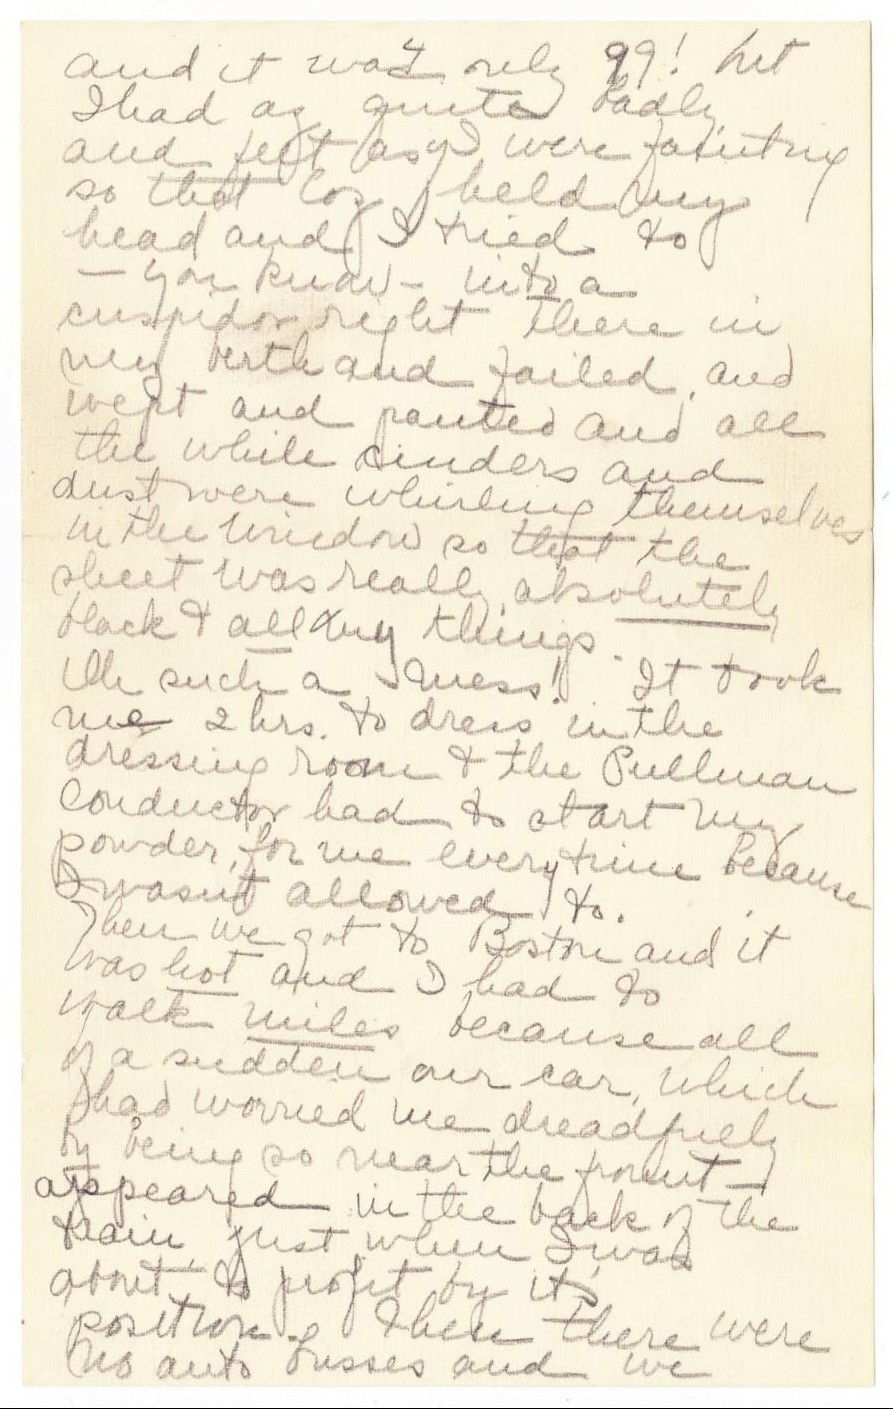 and it was only 99! but
I had ag quite badly
and felt as if I were fainting
so that Coz held my
head and I tried to
— you know — into a
cuspidor right there in
my berth and failed, and
wept and panted and all
the while cinders and
dust were whirling themselves
in the window so that the
sheet was really absolutely
black & all my things.
Oh such a mess! It took
me 2 hrs. to dress in the
dressing room & the Pullman
conductor had to start my
powder, for me everytime because
I wasn't allowed to.
Then we got to Boston and it
was hot and I had to
walk miles because all
of a sudden our car, which
had worried me dreadfully
by being so near the front —
appeared in the back of the
train just when I was
about to profit by it's
position. Then there were
no auto busses and we